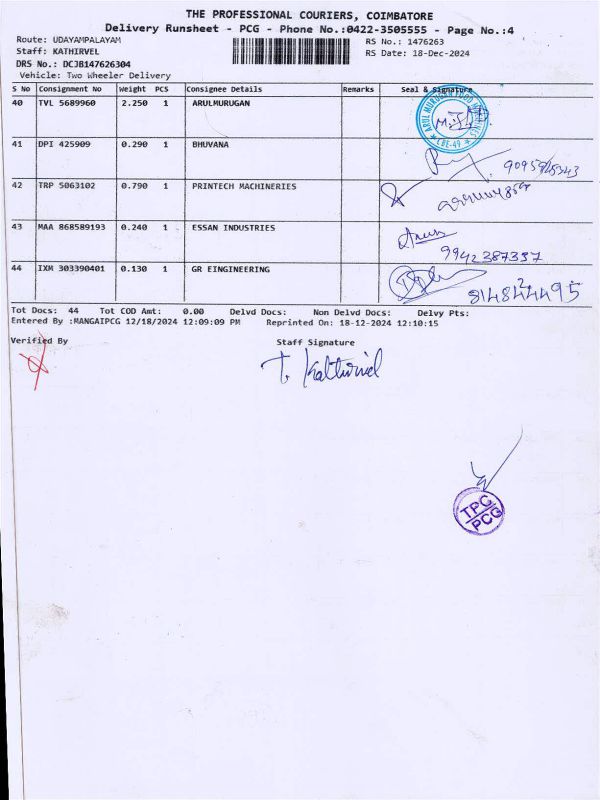 THE PROFESSIONAL COURIERS, COIMBATORE
Delivery Runsheet - PCG - Phone No.:0422-3505555 - Page No.:4
Route: UDAYAMPALAYAM
RS No.: 1476263
Staff: KATHIRVEL
RS Date: 18-Dec-2024
DRS No.: DCJB147626304
Vehicle: Two Wheeler Delivery
S No Consignment No Weight PCS Consignee Details Remarks Seal & Signature
40 TVL 5689960 2.250 1 ARULMURUGAN
41 DPI 425909 0.290 1 BHUVANA
42 TRP 5063102 0.790 1 PRINTECH MACHINERIES
43 MAA 868589193 0.240 1 ESSAN INDUSTRIES
9942387337
44 IXM 303390401 0.130 1 GR EINGINEERING
Tot Docs: 44 Tot COD Amt: 0.00 Delvd Docs: Non Delvd Docs: Delvy Pts:
Entered By :MANGAIPCG 12/18/2024 12:09:09 PM Reprinted On: 18-12-2024 12:10:15
Verified By Staff Signature
T. Kathirvel
TPC
PCG